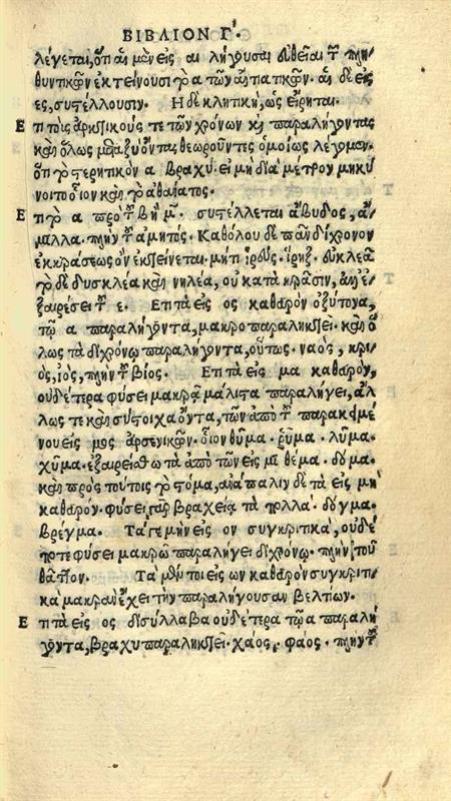 ΒΙΒΛΙΟΝ Γ'.
λέγεται, ὅτι αἱ μὲν εἰς αι λήγουσαι εὐθεῖαι τῶν πλη/
θυντικῶν ἐκτείνουσι τὸ α τῶν αἰτιατικῶν. αἱ δὲ εἰς
ες, συστέλλουσιν. Ἡ δὲ κλητικὴ, ὡς εἴρηται.
Ε πὶ τοὺς ἀρκτικούς τε τῶν χρόνων καὶ παραλήγοντας
καὶ ὅλως μεταξὺ ὄντας θεωροῦντες ὁμοίως λέγομεν.
ὅτι τὸ στερητικὸν α βραχύ· εἰ μὴ διὰ μέτρον μηκύ
νοιτο οἷον καὶ τὸ ἀθανατος.
Ε πὶ τὸ α πρὸ τοῦ β ἢ μ. συστέλλεται ἄβυδος, ἅ/
μιλλα. πλὴν τοῦ ἀμητός. Καθόλου δὲ πᾶν δίχρονον
ἐκ κράσεως ὂν ἐκτείνεται. μήτι ἱρεύς. ἵρηξ. εὐκλεᾶ
τὸ δὲ δυσκλεα καὶ νηλέα, οὐ κατὰ κρᾶσιν, ἀλλ' ἐ/
ξαιρέσει τοῦ ε. Ε πὶ τὰ εἰς ος καθαρὸν ὀξύτονα,
τῷ α παραλήγοντα, μακροπαραληκτεῖ. καὶ ὅ
λως τὰ διχρόνῳ παραλήγοντα, οὕτως. ναός, κρι
ός, ἰός, πλὴν τοῦ βίος. Ε πὶ τὰ εἰς μα καθαρὸν,
οὐδέτερα φύσει μακρᾷ μάλιστα παραλήγει, ἄλ
λως τε καὶ σύστοιχα ὄντα, τῶν ἀπὸ τοῦ παρακειμέ
νου εἰς μος ἀρσενικῶν. οἷον θῦμα. ῥῦμα. λῦμα.
χῦμα. ἐξαιρείσθω τὰ ἀπὸ τῶν εἰς μι θέμα. δόμα.
καὶ πρὸς τούτοις τὸ στόμα, ἀνάπαλιν δὲ τὰ εἰς μὴ
καθαρὸν. φύσει γὰρ βραχεῖα τὰ πολλά. δόγμα.
βρέγμα. Τά γε μὴν εἰς ον συγκριτικά, οὐδέ
ποτε φύσει μακρῷ παραλήγει διχρόνῳ. πλὴν τοῦ
θᾶττον. Τὰ μέντοι εἰς ων καθαρὸν συγκριτι/
κὰ μακρὰν ἔχει τὴν παραλήγουσαν βελτίων.
Ε πὶ τὰ εἰς ος δισύλλαβα οὐδέτερα τῷ α παραλή
γοντα, βραχυπαραληκτεῖ. χάος, φάος. πλὴν τοῦ